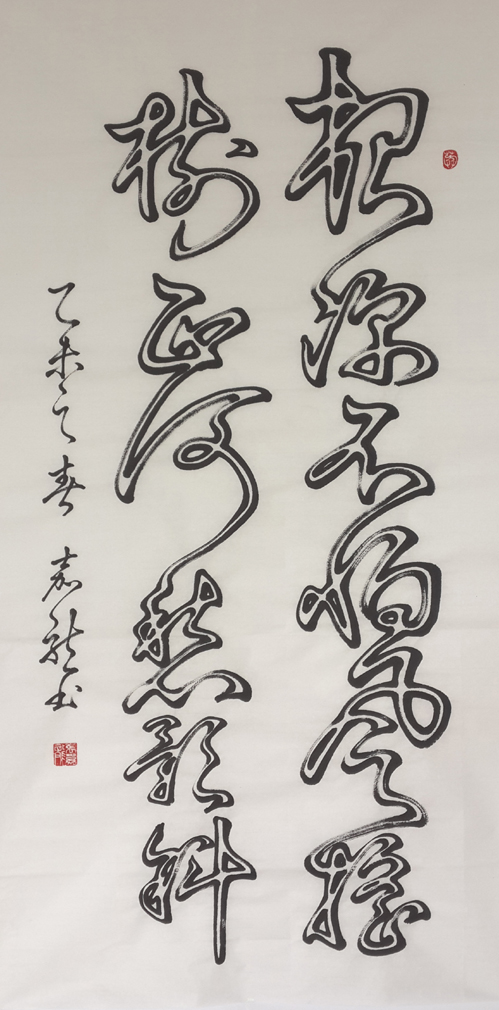 根深不怕风摇
树正何愁影斜
乙未之春 嘉龙书